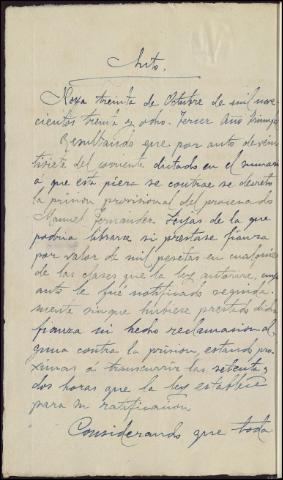 Auto.
Noya treinta de Octubre de mil nove
cientos treinta y ocho. Tercer Año Triunfal
Resultando que por auto de vein
tisiete del corriente dictado en el sumario
á que esta pieza se contrae se decretó
la prisión provisional del procesado
Manuel Fernandez de la que
podria librarse si prestase fianza
por valor de mil pesetas en cualquiera
de las clases que la ley autoriza, cuyo
auto le fué notificado seguida
mente sin que hubiese prestado dicha
fianza ni hecho reclamación al
guna contra la prisión, estando pró
ximas á transcurrir las setenta y
dos horas que la ley establece
para su ratificación
Considerando que toda